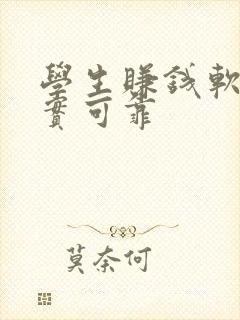 學生賺錢軟
實可靠
莫奈何